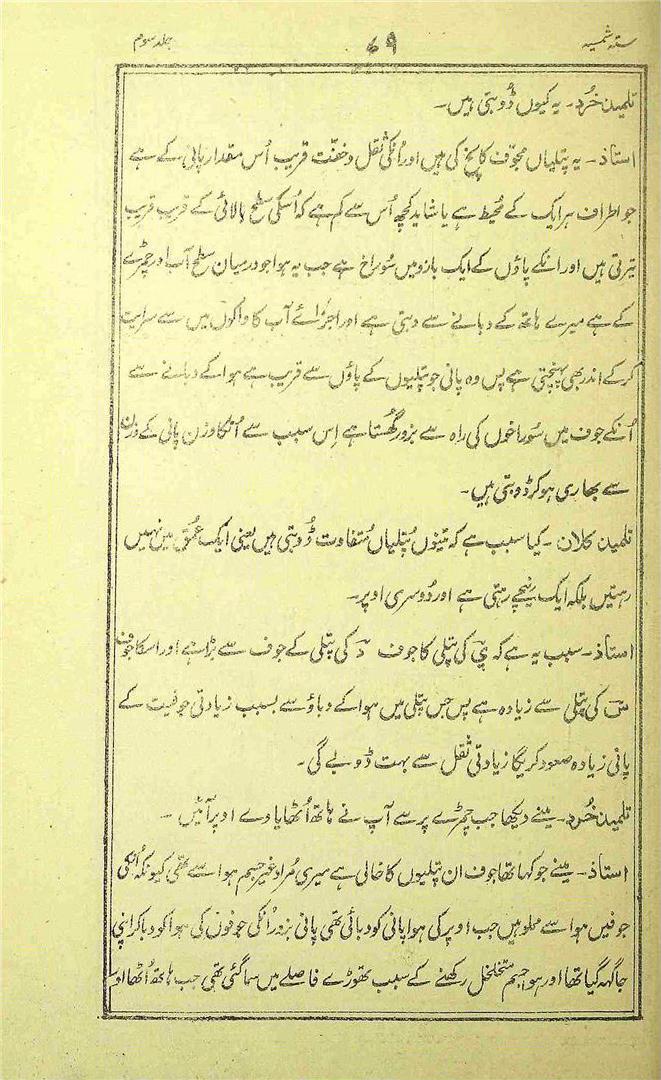 ستہ شمسیہ ۶۹ جلد سوم
تلمیذ خُرد ۔ یہ کیوں ڈُوبتی ہیں ۔
استاذ ۔ یہ پتلیاں مجوّف کانچ کی ہیں اور اُنکی ثقل و خفّت قریب اُس مقدار پانی کے ہے
جو اطراف ہر ایک کے مُحیط ہے یا شاید کچھ اُس سے کم ہے کہ اُسکی سطح بالائی کے قریب قریب
تیرتی ہیں اور انکے پاؤں کے ایک بازو میں سُوراخ ہے جب یہ ہوا جو درمیان سطح آب اور چمڑے
کے ہے میرے ہاتھ کے دبانے سے دبتی ہے اور اجزائے آب کا واکوں میں سے سرایت
کر کے اندر بھی پہنچتی ہے پس وہ پانی جو پتلیوں کے پاؤں سے قریب ہے ہوا کے دبانے سے
اُنکے جوف میں سُوراخوں کی راہ سے بزور گھُستا ہے اِس سبب سے اُنکا وزن پانی کے وزن
سے بھاری ہو کر ڈوبتی ہیں ۔
تلمیذ کلان ۔ کیا سبب ہے کہ تینوں پُتلیاں مُتفاوت ڈُوبتی ہیں یعنی ایک عُمق میں نہیں
رہتیں بلکہ ایک نیچے رہتی ہے اور دُوسری اوپر ۔
استاذ ۔ سبب یہ ہے کہ ي کی پتلی کا جوف د کی پتلی کے جوف سے بڑا ہے اور اسکا جوف
س کی پتلی سے زیادہ ہے پس جس پتلی میں ہوا کے دباؤ سے بسبب زیادتی جوفیت کے
پانی زیادہ صعود کریگا زیادتی ثقل سے بہت ڈوبے گی ۔
تلمیذ خُرد ۔ مینے دیکھا جب چمڑے پر سے آپ نے ہاتھ اُٹھایا وے اوپر آئیں ۔
استاذ ۔ مینے جو کہا تھا جوف ان پتلیوں کا خالی ہے میری مُراد غیر جسم ہوا سے تھی کیونکہ اُنکی
جوفیں ہوا سے مملو ہیں جب اوپر کی ہوا پانی کو دبائی تھی پانی بزور اُنکی جوفوں کی ہوا کو دبا کر اپنی
جاگہہ گیا تھا اور ہوا جسم متخلخل رکھنے کے سبب تھوڑے فاصلے میں سما گئی تھی جب ہاتھ اُٹھا اوسے